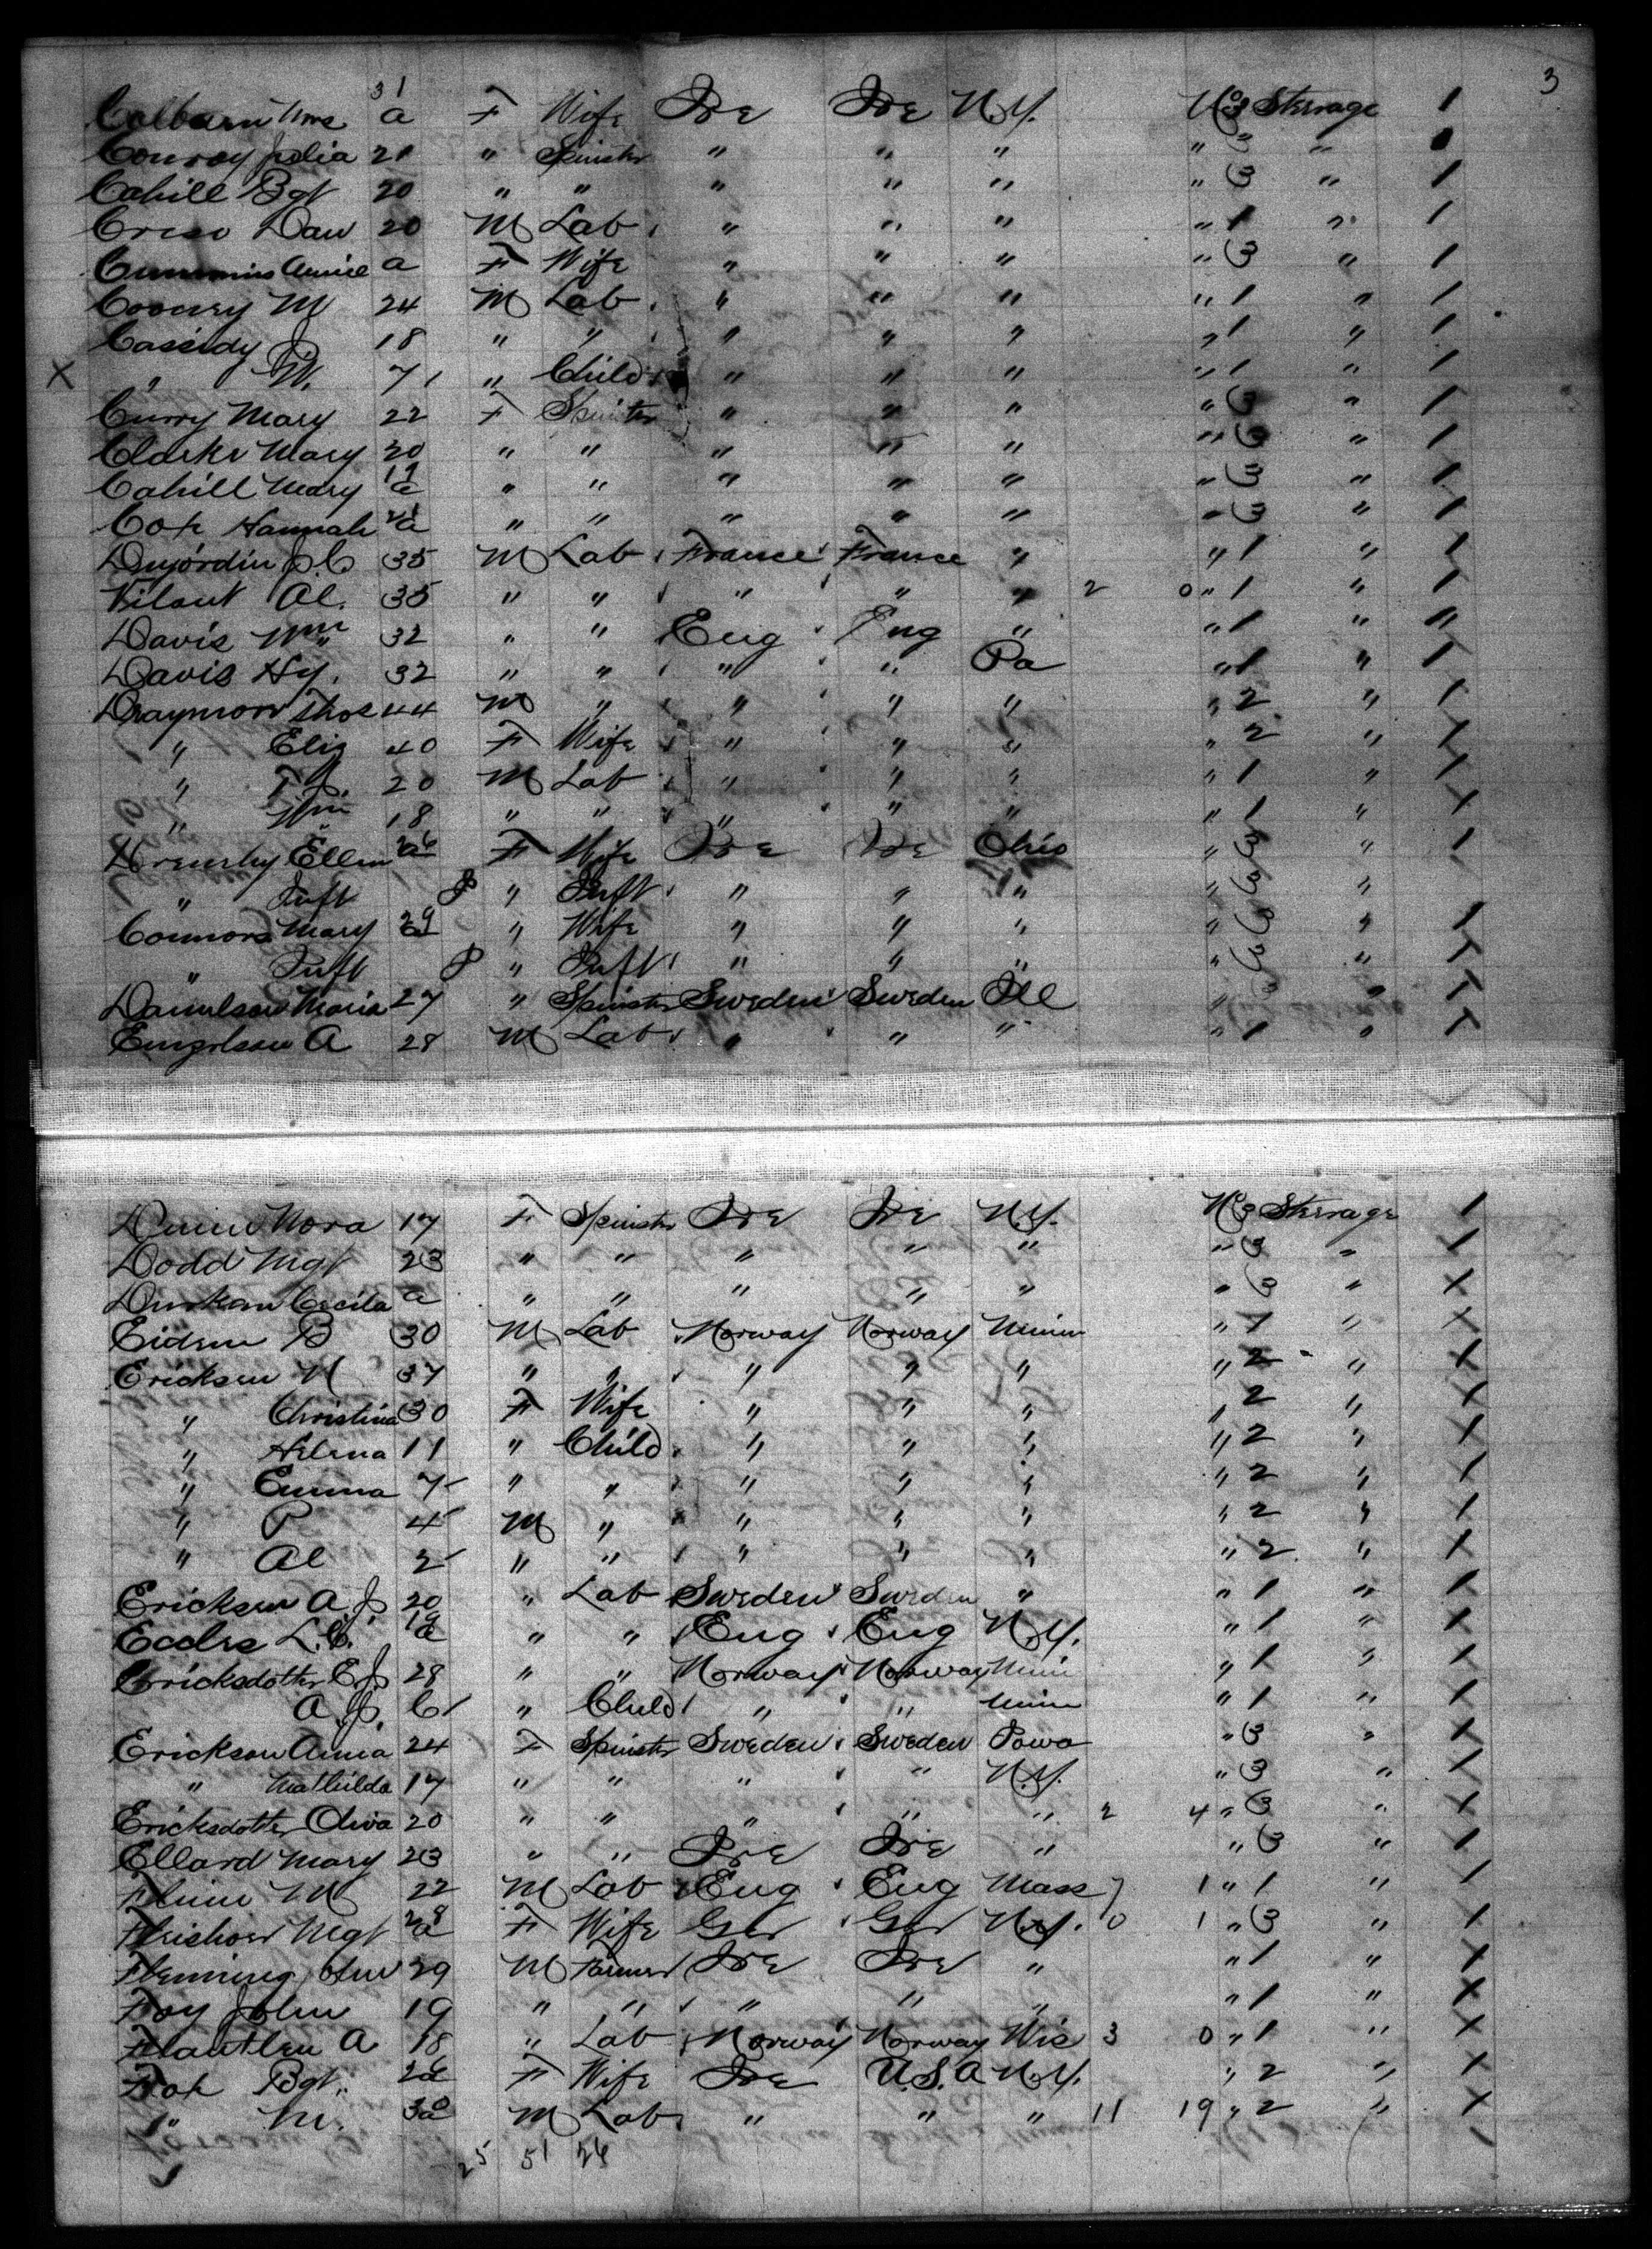 3
31
Colbarn Mrs a F Wife Ire Ire N.Y. No 3 Steerage 1
Conroy Julia 21 " Spinster " " " " 3 "
Cahill Bgt 20 " " " " " " 3 " 1
Dan 20 M Lab " " " " 1 " 1
Cummins Annie a F Wife " " " " 3 " 1
Cooney M 24 M Lab " " " " 1 " 1
Cassidy J 18 " " " " " " 1 " 1
X " W. 7 " Child " " " " 1 " 1
Curry Mary 22 F Spinster " " " " 3 " 1
Clarke Mary 20 " " " " " " 3 " 1
Cahill Mary 19 a " " " " " " 3 " 1
Cox Hannah 21 a " " " " " " 3 " 1
Dujordin J C 35 M Lab France France " " 1 " 1
Vilant Al. 35 " " " " " 2 0 " 1 " 1
Davis Wm 32 " " Eng Eng " " 1 " 11
Davis Hy. 32 " " " " Pa " 1 " 1
Draymon Thos 44 M " " " " " 2 " 1
" Eliz 40 F Wife " " " " 2 " 1
" T J. 20 M Lab " " " " 1 " 1
" Wm 18 " " " " " " 1 " 1
Ellen 26 a F Wife Ire Ire Ohio " 3 " 1
" Inft " Inft " " " " 3 "
Connors Mary 29 a " Wife " " " " 3 " 1
" Inft " Inft " " " " 3 " 1
Danielson Maria 27 " Spinster Sweden Sweden Ill " 3 " 1
Engelson A 28 M Lab " " " " 1 " 1
Dunn Nora 17 F Spinster Ire Ire N.Y. No 3 Steerage 1
Dodd Mgt 23 " " " " " " 3 " 1
Durkan Cecila a " " " " " " 3 " 1
Eidem B 30 M Lab Norway Norway Minn " 1 " 1
Ericksen N 37 " " " " " " 2 " 1
" Christina 30 F Wife " " " " 2 " 1
" Helena 11 " Child " " " " 2 " 1
" Emma 7 " " " " " " 2 " 1
" P 4 M " " " " " 2 " 1
" Al 2 " " " " " " 2 " 1
Ericksen A J 20 " Lab Sweden Sweden " " 1 " 1
Eccles L.C. 19 a " " Eng Eng N.Y. " 1 " 1
Ericksdotter E J 28 " " Norway Norway Minn " 1 " 1
A. J. 6 " Child " " Minn " 1 " 1
Erickson Anna 24 F Spinster Sweden Sweden Iowa " 3 " 1
" Mathilda 17 " " " " N.Y. " 3 " 1
Ericksdotter Oliva 20 " " " " " 2 4 " 3 " 1
Ellard Mary 23 " " Ire Ire " " 3 " 1
Flinn M 22 M Lab Eng Eng Mass 7 1 " 1 " 1
Fleishoer Mgt 28 a F Wife Ger Ger N.Y. 0 1 " 3 " 1
Flemming Jno 29 M Farmer Ire Ire " " 1 " 1
Foy John 19 " " " " " " 1 " 1
A 18 " Lab Norway Norway Wis 3 0 " 1 " 1
Fox Bgt. F Wife Ire U.S.A N.Y. " 2 " 1
" M. 30 a M Lab " " " 11 19 " 2 " 1
25 51 26